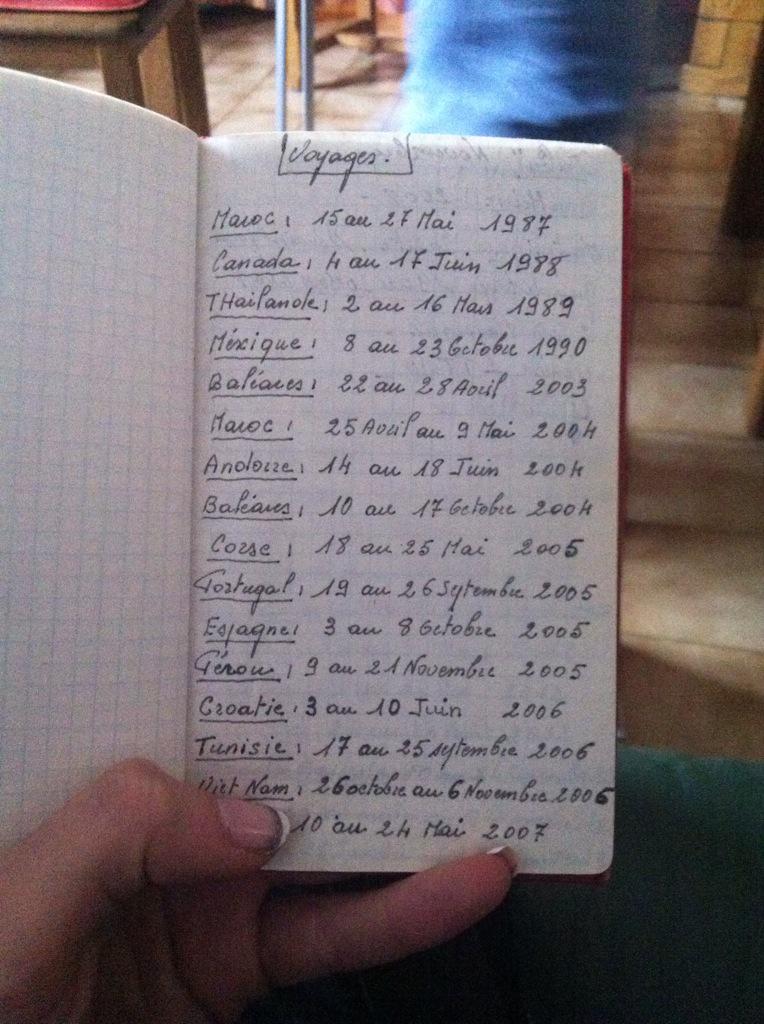 Voyages.
Maroc : 15 au 27 Mai 1987
Canada : 4 au 17 Juin 1988
THailande : 2 au 16 Mars 1989
Méxique : 8 au 23 Octobre 1990
Baléares : 22 au 28 Avril 2003
Maroc : 25 Avril au 9 Mai 2004
Andorre : 14 au 18 Juin 2004
Baléares : 10 au 17 Octobre 2004
Corse : 18 au 25 Mai 2005
Portugal : 19 au 26 Septembre 2005
Espagne : 3 au 8 Octobre 2005
Pérou : 9 au 21 Novembre 2005
Croatie : 3 au 10 Juin 2006
Tunisie : 17 au 25 septembre 2006
Viet Nam : 26 octobre au 6 Novembre 2006
10 au 24 Mai 2007